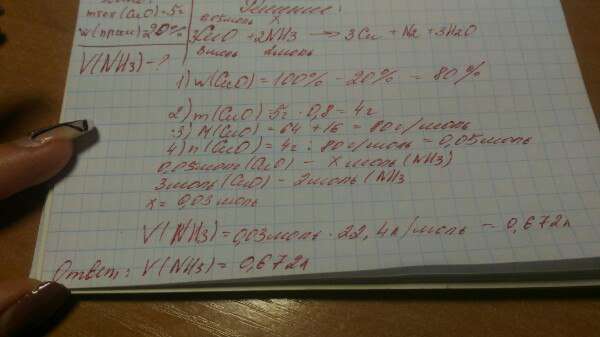 Решение:
mтех(CuO)=5г
w(прим)=20%
V(NH3)-?
0,05моль x
3CuO + 2NH3 → 3Cu + N2 + 3H2O
3моль 2моль
1) w(CuO) = 100% - 20% = 80%
2) m(CuO) = 5г · 0,8 = 4г
3) M(CuO) = 64 + 16 = 80г/моль
4) n(CuO) = 4г : 80г/моль = 0,05моль
0,05моль(CuO) - x моль(NH3)
3моль(CuO) - 2моль(NH3
x = 0,03моль
V(NH3) = 0,03моль · 22,4л/моль = 0,672л
Ответ: V(NH3) = 0,672л